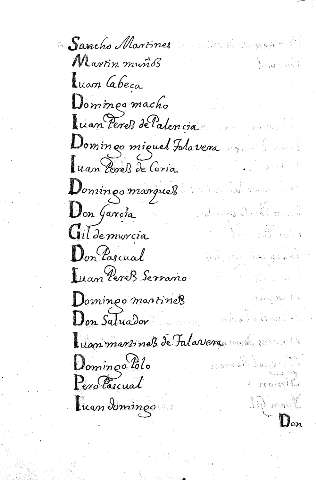 Sancho Martines
Martin muños
Iuan Cabeça
Domingo macho
Iuan Peres de Palencia
Domingo miguel Talavera
Iuan Peres de Coria
Domingo marques
Don Garçia
Gil de murçia
Don Pascual
Iuan Peres Serrano
Domingo martines
Don Salvador
Iuan martines de Talavera
Domingo Polo
Pero Pascual
Iuan domingo
Don